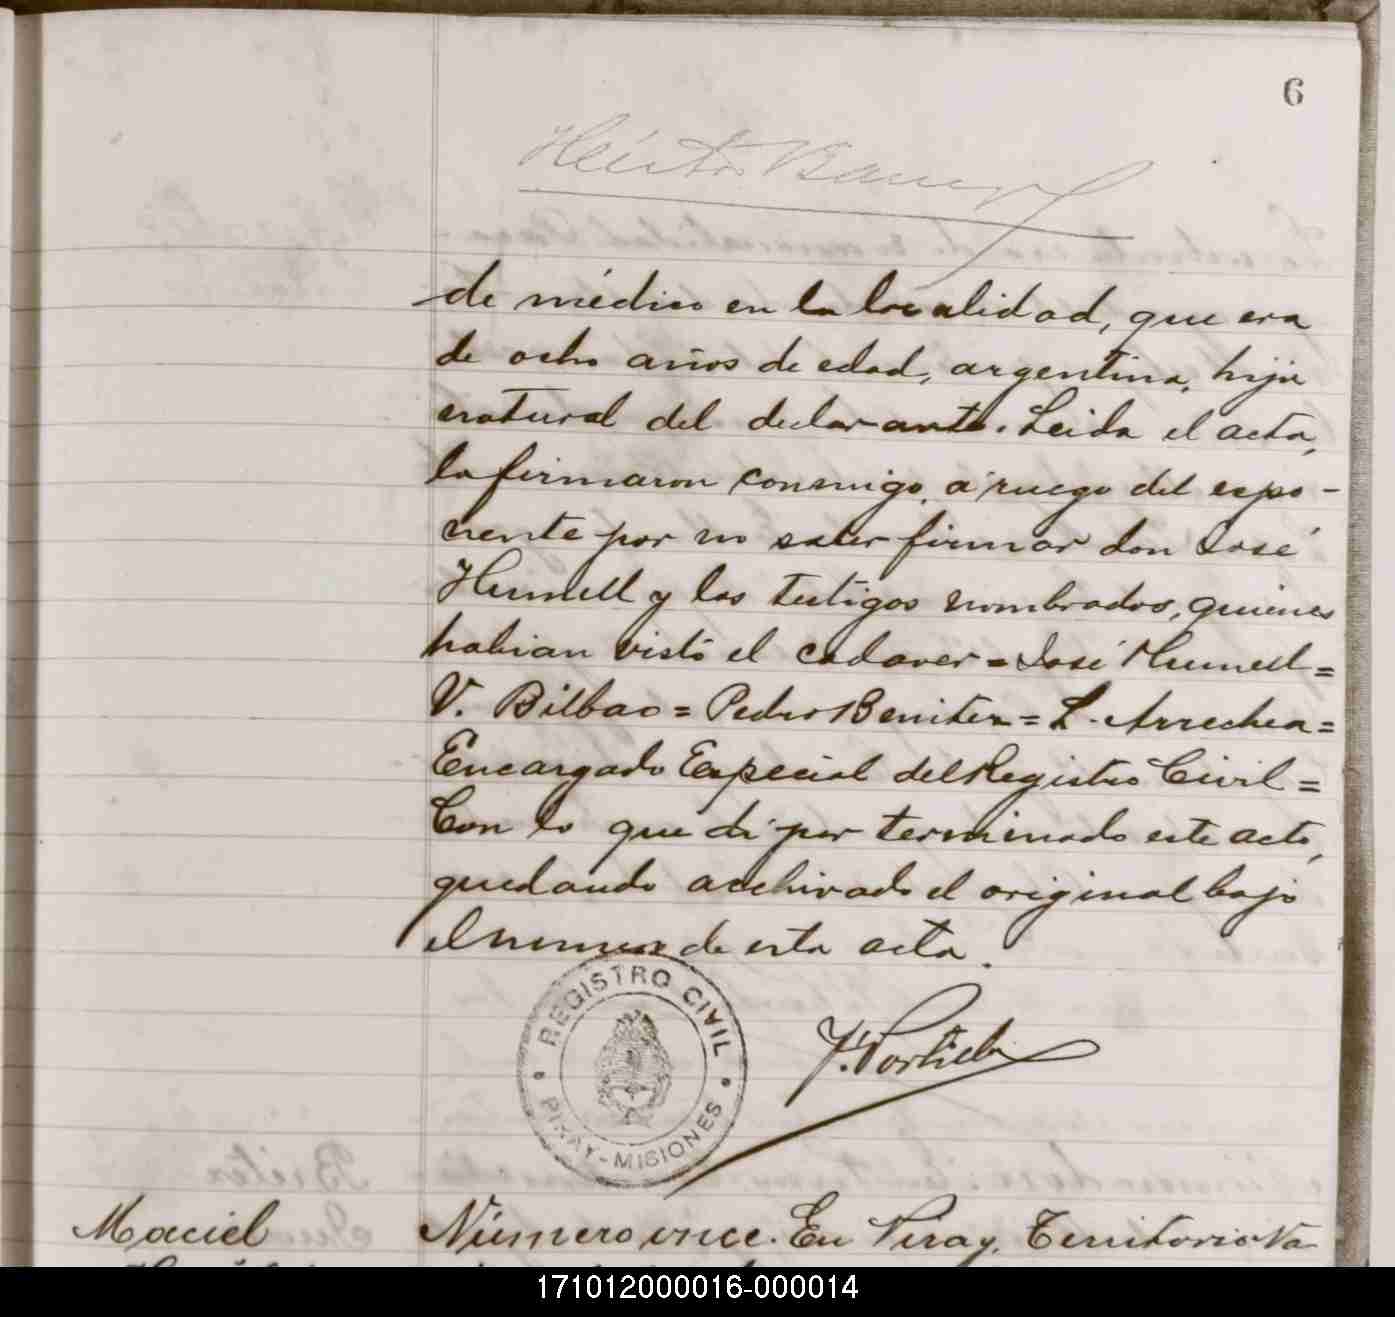 6
Héctor
de médico en la localidad, que era
de ocho años de edad, argentina, hija
natural del declarante. Leida el acta,
la firmaron conmigo, a ruego del expo-
nente por no saber firmar don José
Humell y los testigos nombrados, quienes
habian visto el cadaver = José Humell =
V. Bilbao = Pedro Benitez = L. Arrechea =
Encargado Especial del Registro Civil =
Con lo que dí por terminado este acto,
quedando archivado el original bajo
el numero de esta acta.
REGISTRO CIVIL
PIRAY - MISIONES
Maciel
Número once. En Piray, Territorio Na-
171012000016-000014